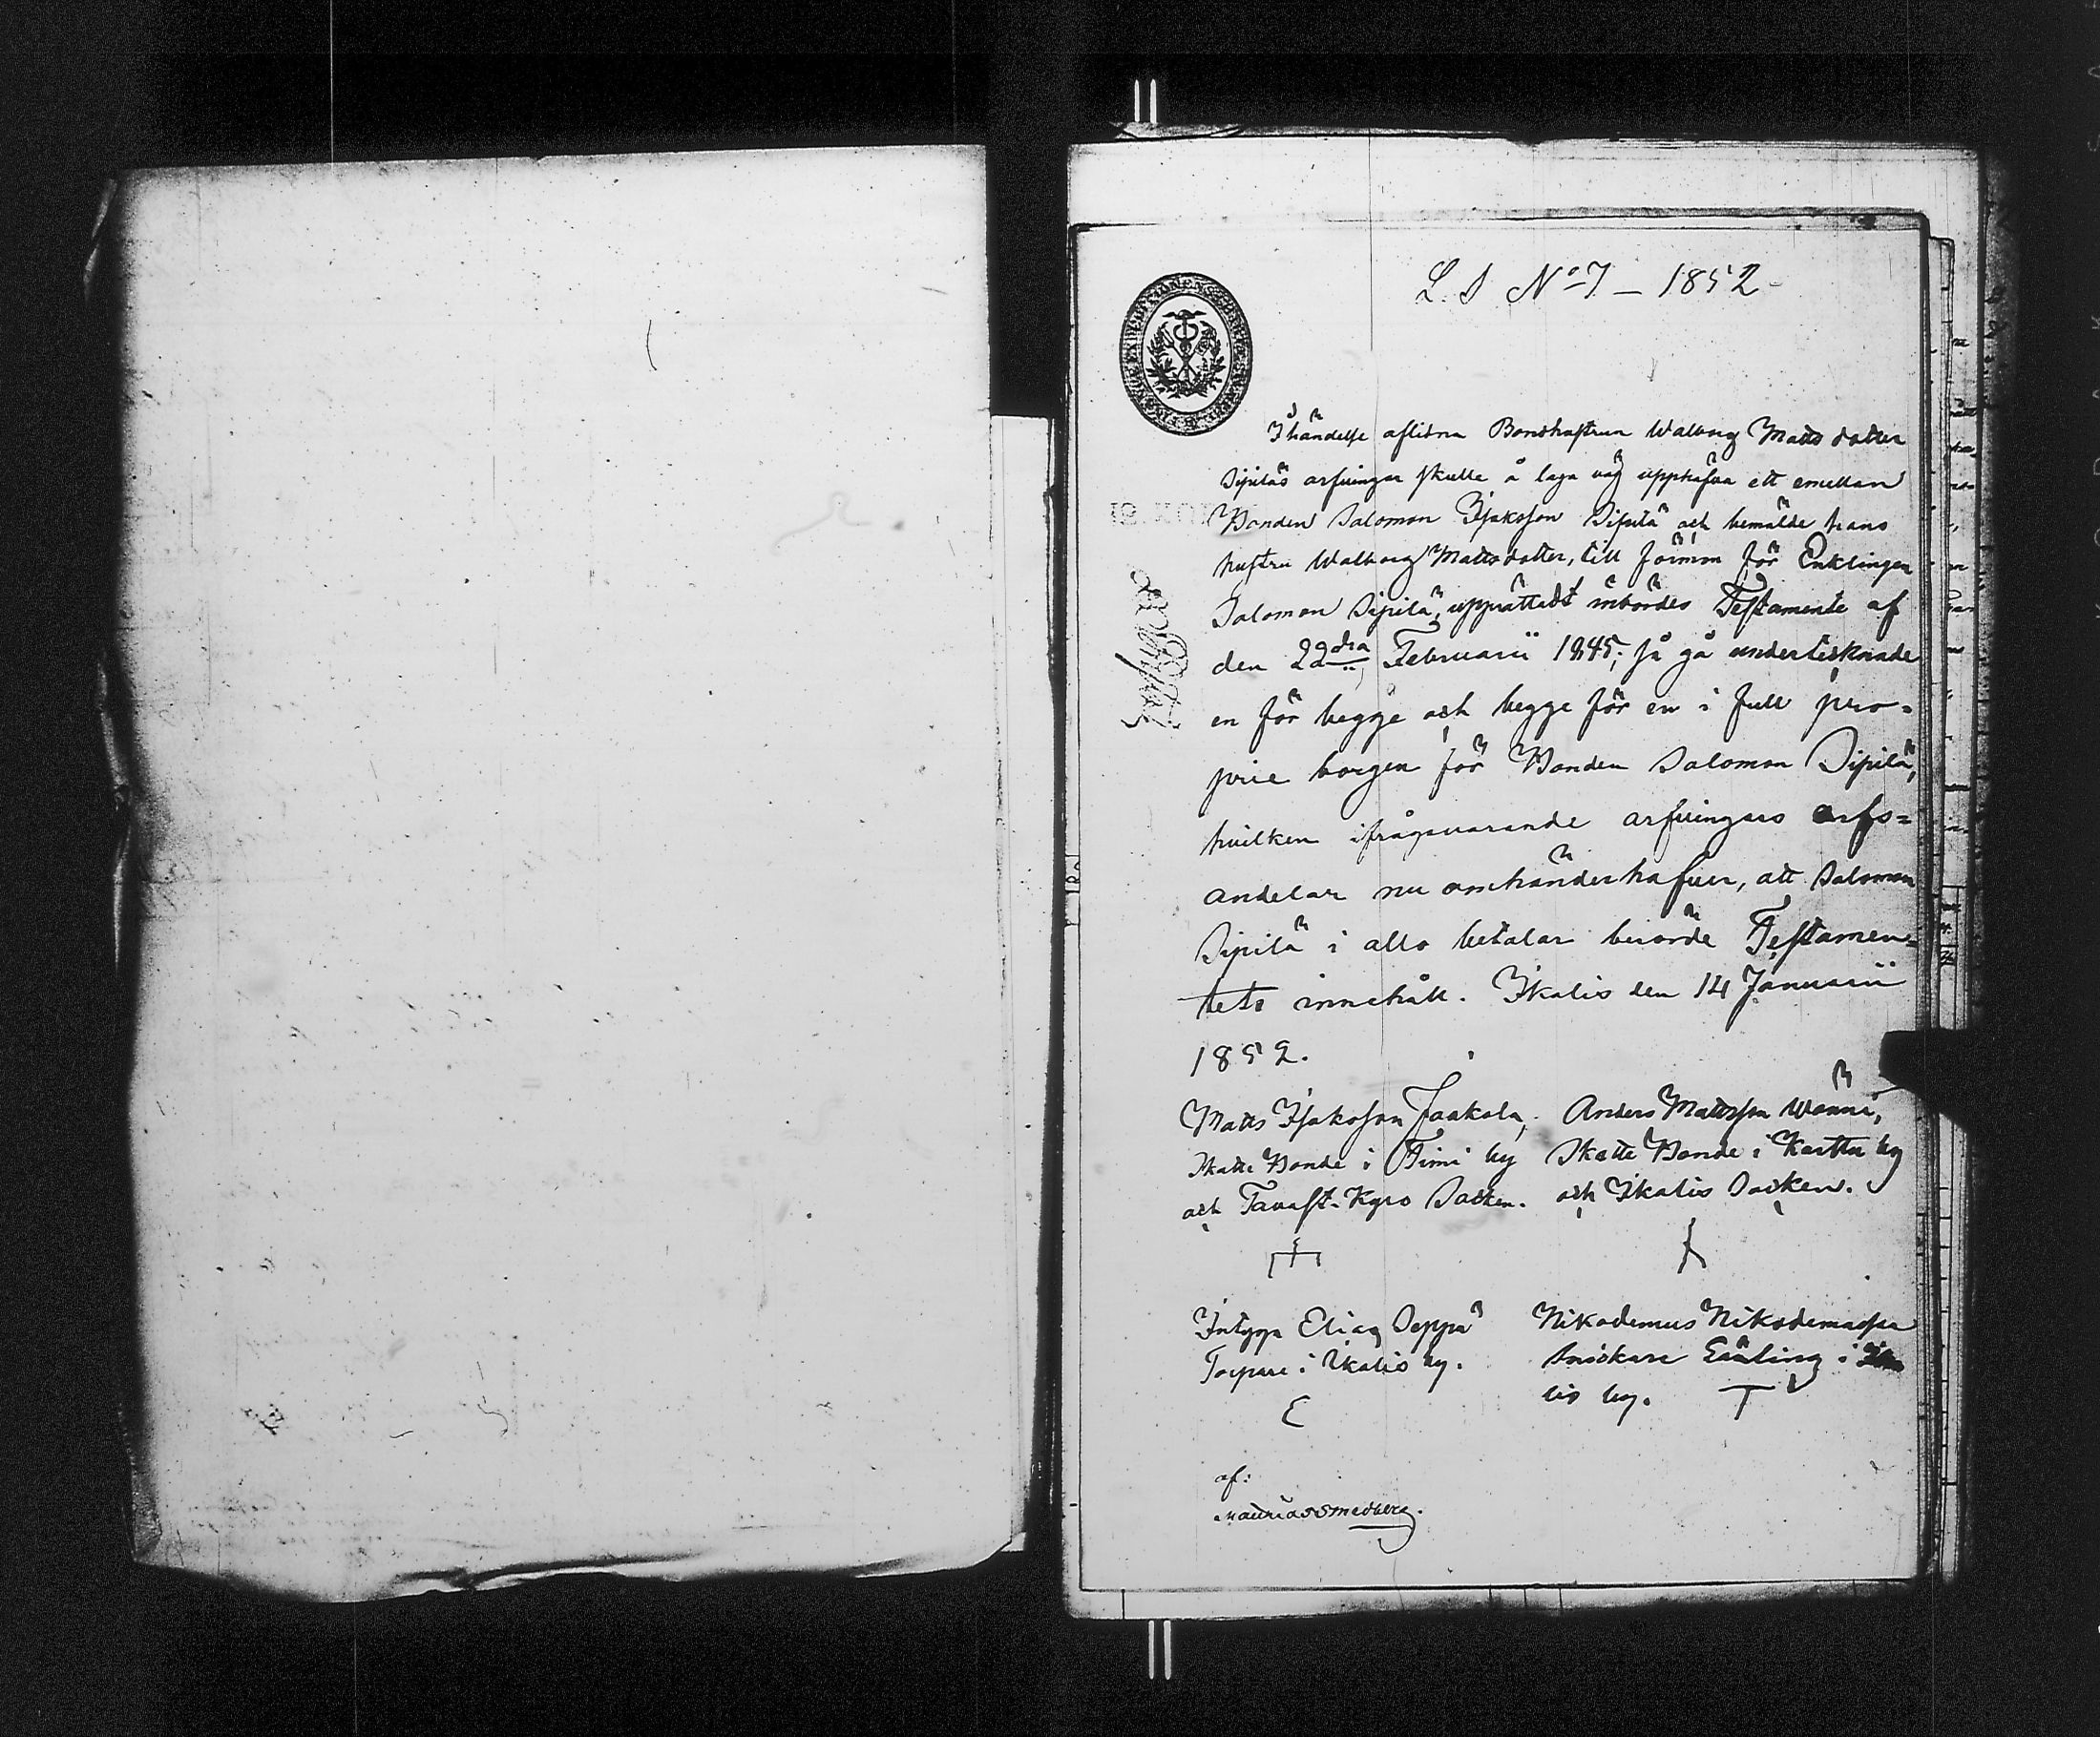 L. S No 7 – 1852
I händelse aflidna Bondhustrun Walborg Mattsdotter
Sipiläs arfvingar skulle å laga väg upphäfva ett emellan
Bonden Salomon Isaksson Sipilä och bemälde hans
hustru Walborg Mattsdotter, till förmon för Enklingen
Salomon Sipilä, upprättadt inbördes Testamente af
den 22dra Februarii 1845; så gå undertecknade
en för begge och begge för en i full pro=
prie borgen för Bonden Salomon Sipilä,
hvilken ifrågavarande arfvingars arfs=
andelar nu omhänderhafver, att Salomon
Sipilä i allo betalar berörde Testamen=
tets innehåll. Ikalis den 14 Januarii
1852.
Matts Isaksson Jaakola, Anders Mattsson Wänni,
Skatte Bonde i Timi by Skatte Bonde i Karttu by
och Tavast-Kyro Socken. och Ikalis Socken.
Intyga Elias Seppä Nikodemus Nikodemusson
Torpare i Ikalis by. Snickare i
lis by. T
E
af:
Mattias Smedberg.